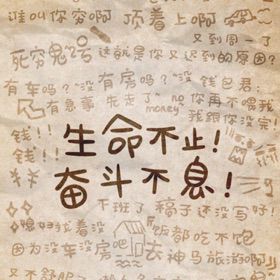 谁叫你穷啊 顶着上啊
又到周一了
死穷鬼 这就是你又迟到的原因?
有车吗? 没有房吗? 没 钱包君:
有急事 先走了~ no money 你再不喂我
钱! 我跟你没完!
钱!!
生命不止!
奋斗不息!
不班了 稿子还没写好
媳妇找着没 饭都吃不饱
因为没车没房吧 去神马旅游啊
又不舒服